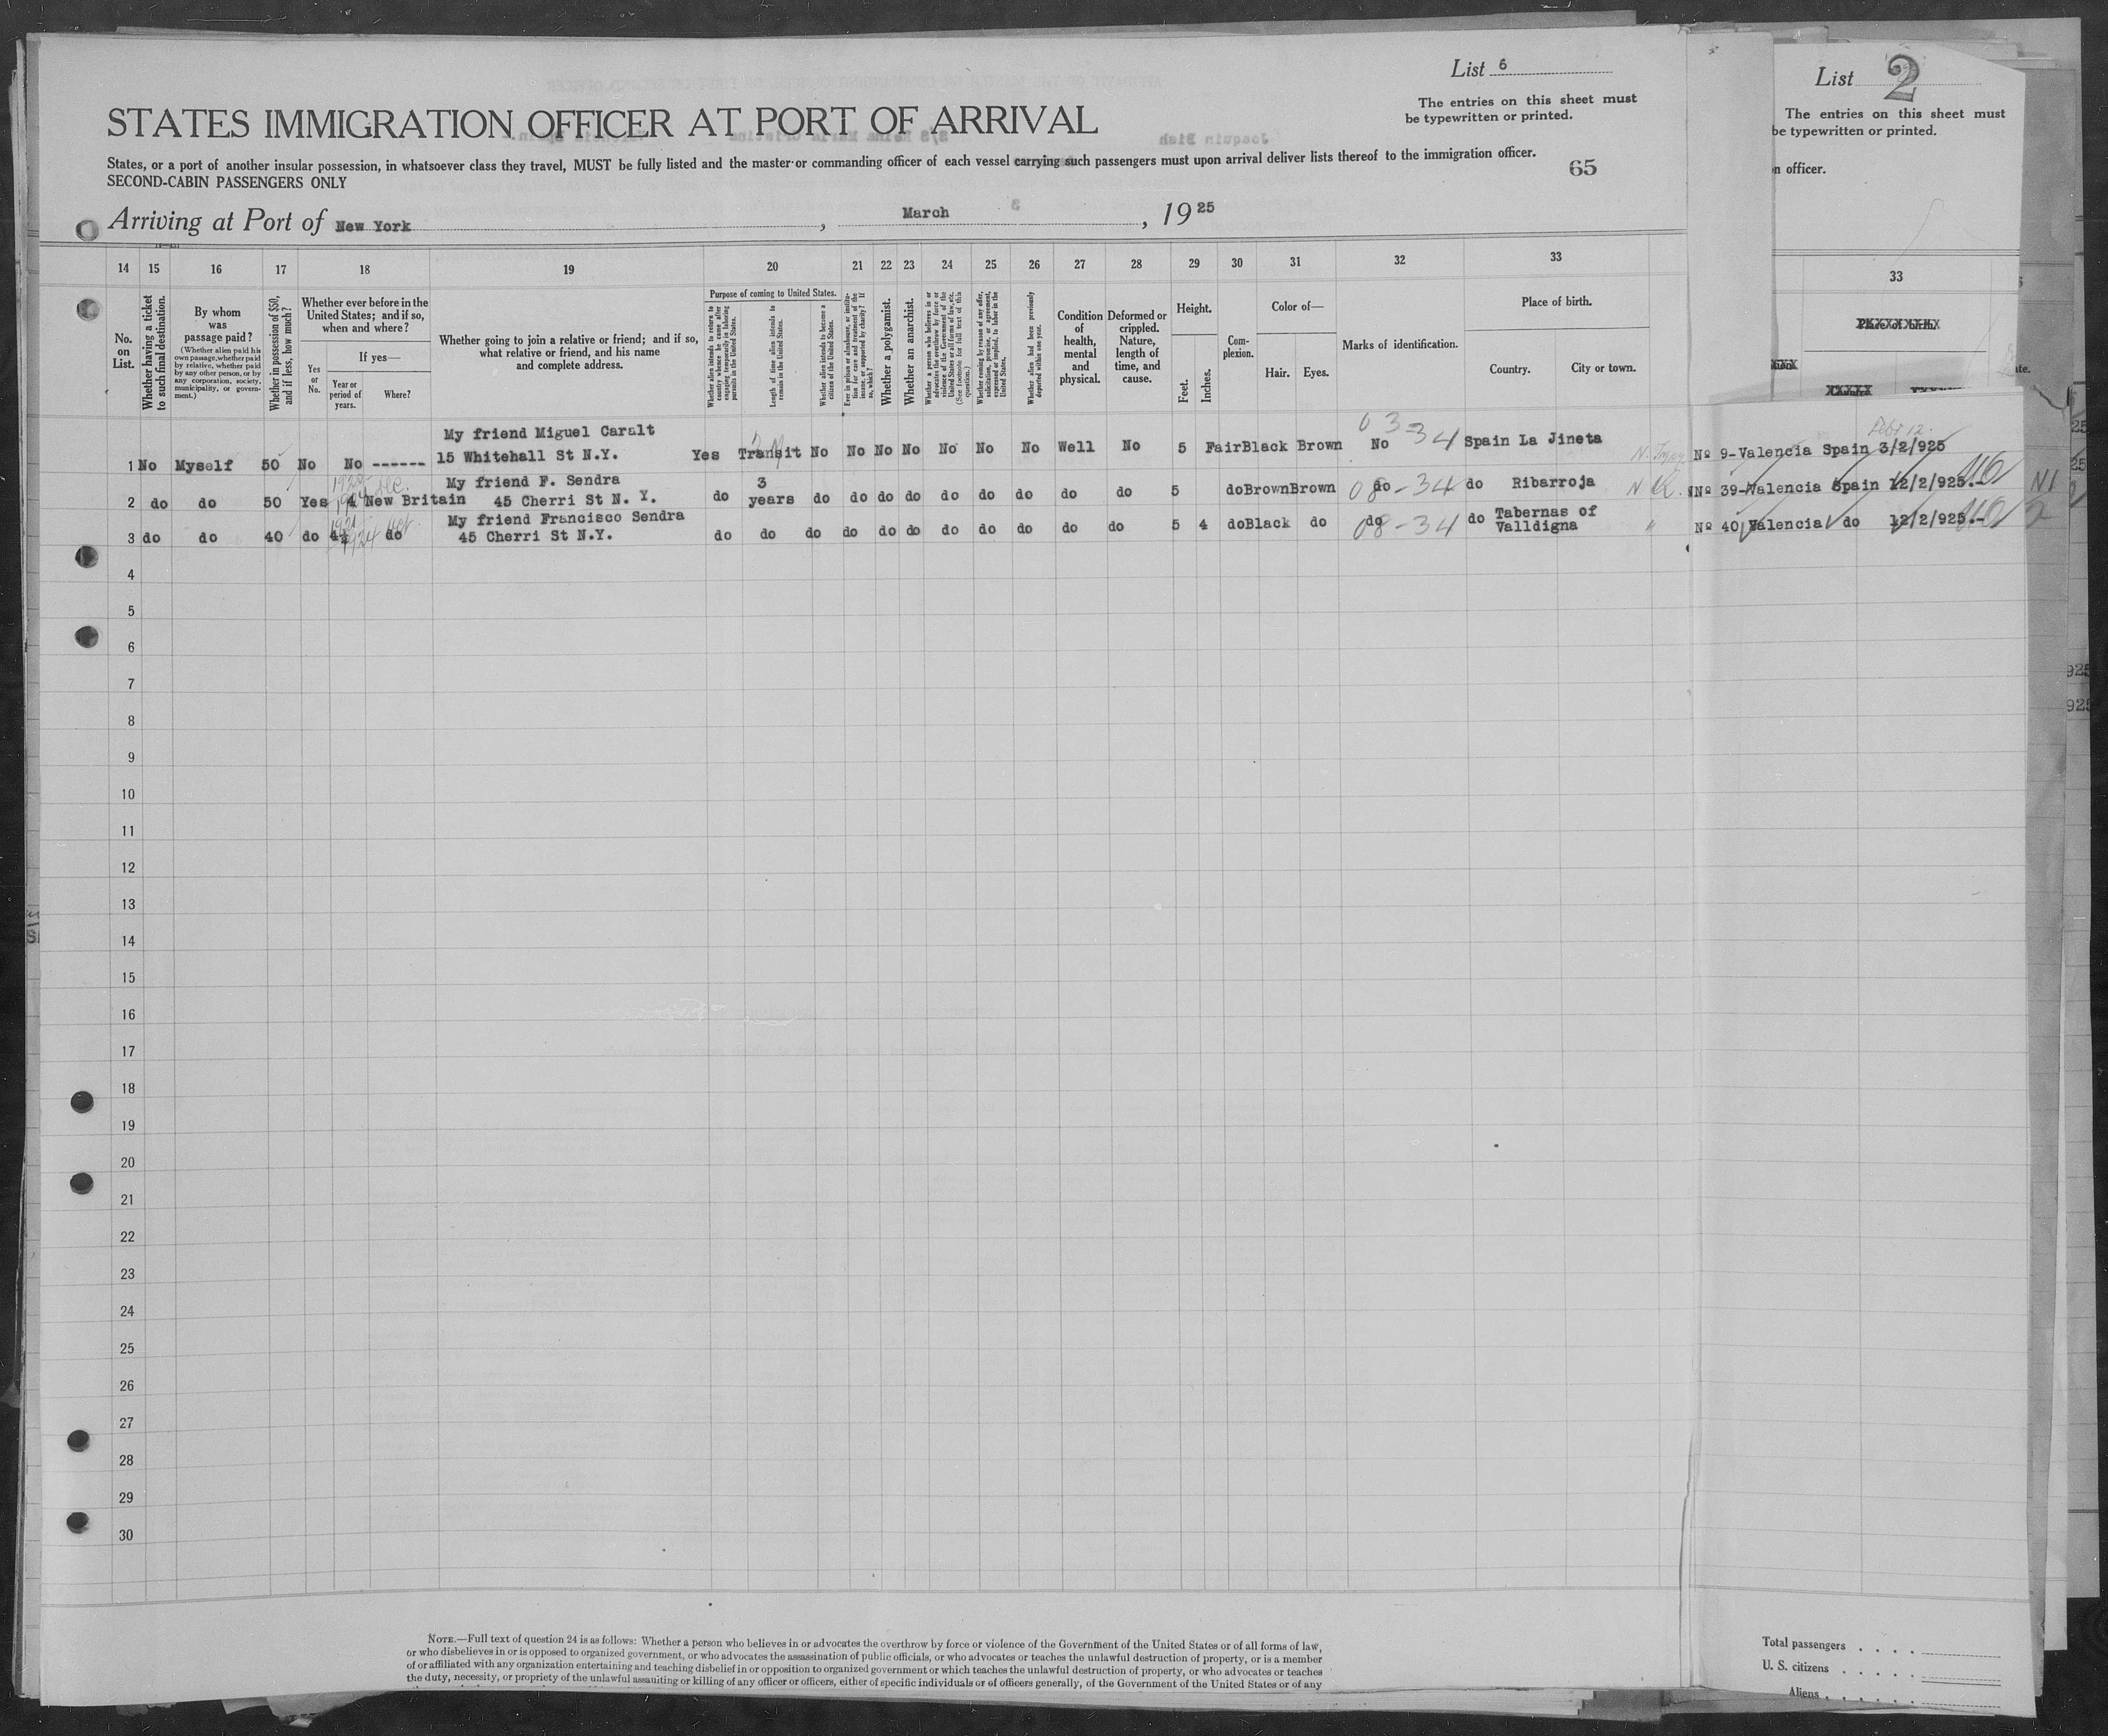 List 6
The entries on this sheet must
be typewritten or printed.
STATES IMMIGRATION OFFICER AT PORT OF ARRIVAL
States, or a port of another insular possession, in whatsoever class they travel, MUST be fully listed and the master or commanding officer of each vessel carrying such passengers must upon arrival deliver lists thereof to the immigration officer.
SECOND-CABIN PASSENGERS ONLY
65
Arriving at Port of New York, March 3, 1925
14 15 16 17 18 19 20 21 22 23 24 25 26 27 28 29 30 31 32 33
No. on List.
Whether having a ticket to such final destination.
By whom was passage paid?
(Whether alien paid his own passage, whether paid by relative, whether paid by any other person, or by any corporation, society, municipality, or government.)
Whether in possession of $50, and if less, how much?
Whether ever before in the United States; and if so, when and where?
Yes or No.
If yes—
Year or period of years.
Where?
Whether going to join a relative or friend; and if so, what relative or friend, and his name and complete address.
Purpose of coming to United States.
Whether alien intends to return to country whence he came after engaging temporarily in laboring pursuits in the United States.
Length of time alien intends to remain in the United States.
Whether alien intends to become a citizen of the United States.
Ever in prison or almshouse, or institution for care and treatment of the insane, or supported by charity? If so, which?
Whether a polygamist.
Whether an anarchist.
Whether a person who believes in or advocates the overthrow by force or violence of the Government of the United States or all forms of law, etc. (See footnote for full text of this question.)
Whether coming by reason of any offer, solicitation, promise, or agreement, expressed or implied, to labor in the United States.
Whether alien had been previously deported within one year.
Condition of health, mental and physical.
Deformed or crippled. Nature, length of time, and cause.
Height.
Feet.
Inches.
Complexion.
Color of—
Hair.
Eyes.
Marks of identification.
Place of birth.
Country.
City or town.
My friend Miguel Caralt
1 No Myself 50 No No ------ 15 Whitehall St N.Y. Yes Transit No No No No No No No Well No 5 Fair Black Brown No 03-34 Spain La Jineta Nº 9-Valencia Spain 3/2/925
My friend F. Sendra 3
2 do do 50 Yes 4 New Britain 45 Cherri St N. Y. do years do do do do do do do do do 5 do Brown Brown do 08-34 do Ribarroja Nº 39-Valencia Spain 12/2/925.-
My friend Francisco Sendra Tabernas of
3 do do 40 do 4½ do 45 Cherri St N.Y. do do do do do do do do do do do 5 4 do Black do do 08-34 do Valldigna Nº 40 Valencia do 12/2/925.-
4
5
6
7
8
9
10
11
12
13
14
15
16
17
18
19
20
21
22
23
24
25
26
27
28
29
30
NOTE.—Full text of question 24 is as follows: Whether a person who believes in or advocates the overthrow by force or violence of the Government of the United States or of all forms of law,
or who disbelieves in or is opposed to organized government, or who advocates the assassination of public officials, or who advocates or teaches the unlawful destruction of property, or is a member
of or affiliated with any organization entertaining and teaching disbelief in or opposition to organized government or which teaches the unlawful destruction of property, or who advocates or teaches
the duty, necessity, or propriety of the unlawful assaulting or killing of any officer or officers, either of specific individuals or of officers generally, of the Government of the United States or of any
List 2
The entries on this sheet must
be typewritten or printed.
n officer.
33
Total passengers
U. S. citizens
Aliens